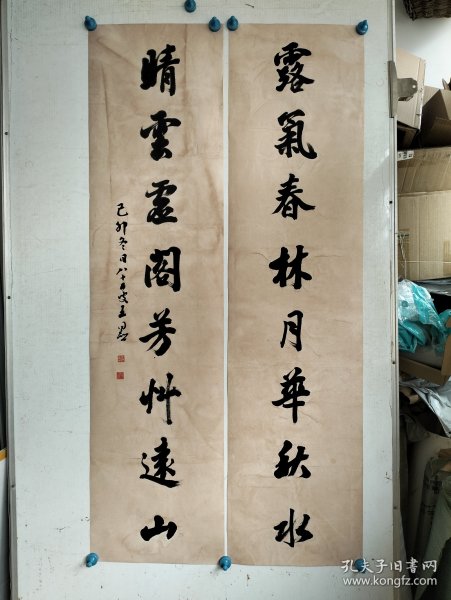 露氣春林月華秋水
晴雲虚閣芳艸遠山
己卯冬日八十五叟王
孔夫子旧书网
www.kongfz.com